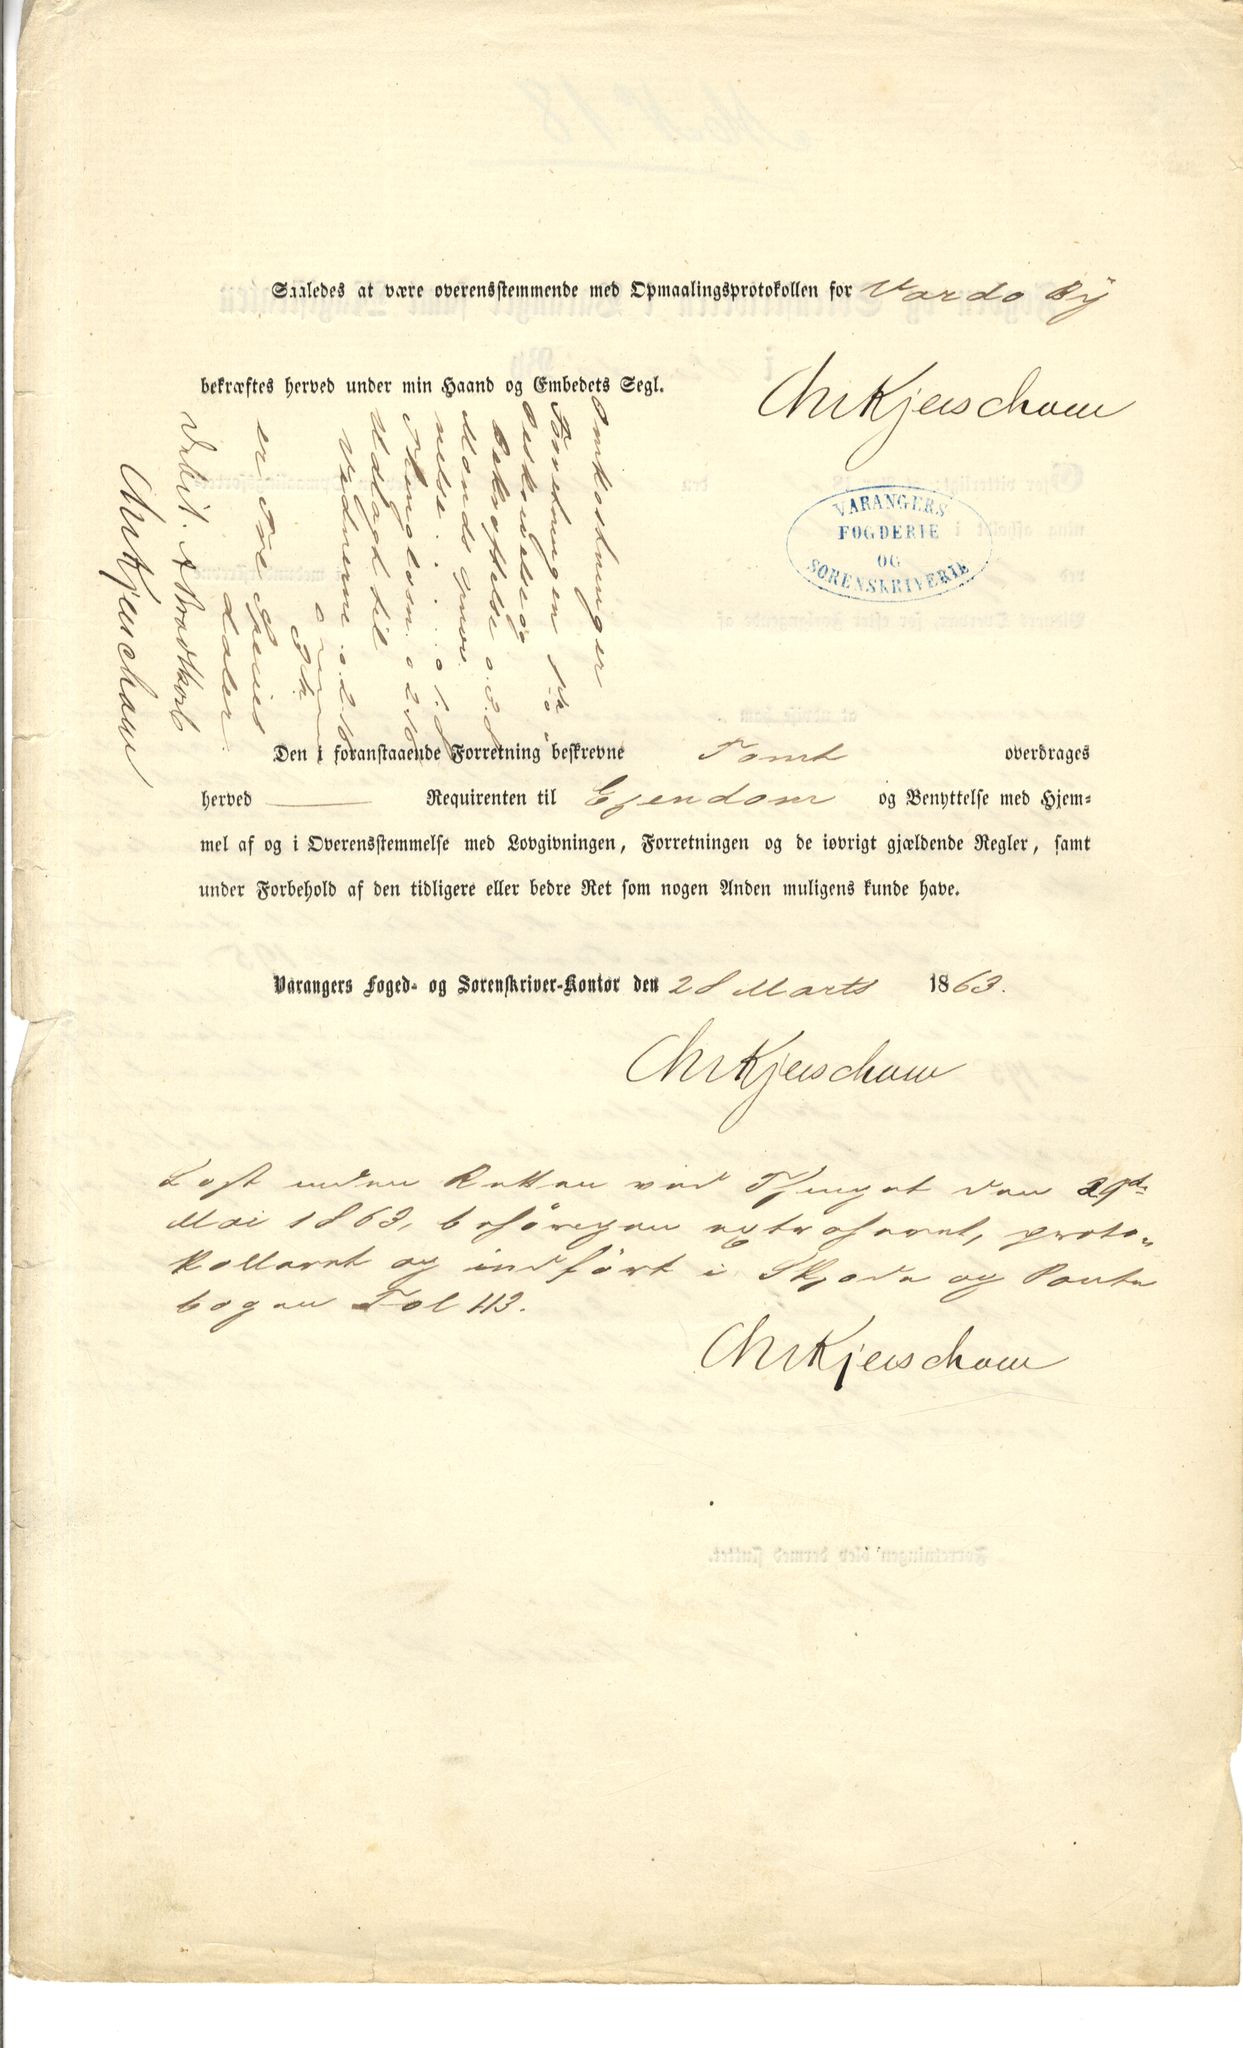 Saaledes at være overensstemmende med Opmaalingsprotokollen for Vardø By
bekræftes herved under min Haand og Embedets Segl.
Chr Kjerschow
VARANGERS
FOGDERIE
OG
SORENSKRIVERIE
Omkostninger
Forretningen
Beskrivelse og
Bekræftelse
Mands
nelse
Thinglæsn.
Udlagd til
Vidnerne
er Tre Species
daler
Debit.
Chr Kjerschow
Den i foranstaaende Forretning beskrevne Tomt overdrages
herved Requirenten til Eiendom og Benyttelse med Hjem-
mel af og i Overensstemmelse med Lovgivningen, Forretningen og de iøvrigt gjældende Regler, samt
under Forbehold af den tidligere eller bedre Ret som nogen Anden muligens kunde have.
Varangers Foged- og Sorenskriver-Kontor den 28 Marts 1863.
Chr Kjerschow
Læst inden Retten ved Thinget den 29d
Mai 1863, behørigen extraheret, proto-
kolleret og indført i Skjøde og Pante
bogen Fol 113.
Chr Kjerschow